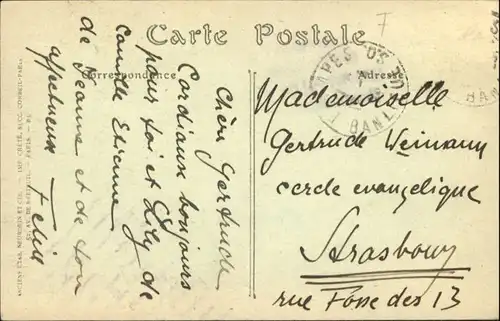 Carte Postale
Correspondence
Adresse
F
Chère Gertrude
Cordiaux bonjours
pour toi et Lily de
Camille Etienne
de Jeanne et de ton
affectueux Felix
Mademoiselle
Gertrude Weimann
cercle evangelique
Strasbourg
rue Fosse des 13
ANCIENS ETAB. NEURDEIN ET CIE. IMP. CRÉTÉ, SUCC. CORBEIL-PARIS